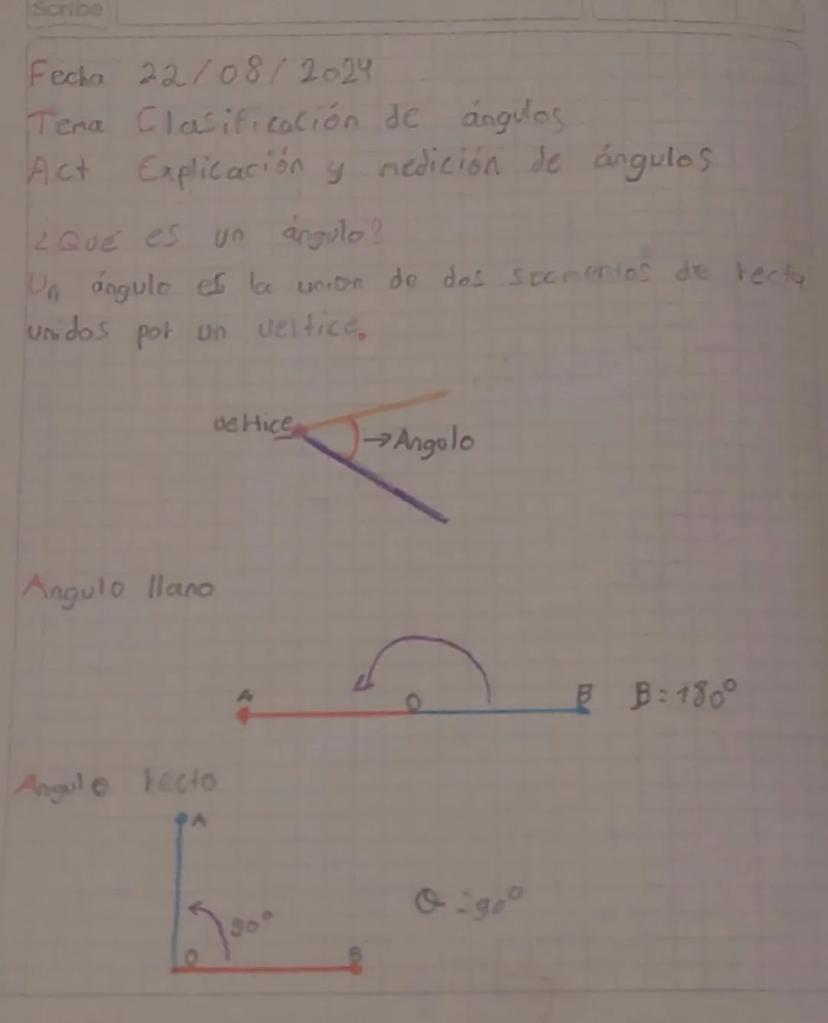 Scribe
Fecha 22/08/2024
Tema Clasificación de ángulos
Act Explicación y medición de ángulos
¿Qué es un ángulo?
Un ángulo es la union de dos segmentos de recta
unidos por un vertice.
vertice
→Angolo
Angulo llano
A O B B=180°
Angulo recto
A
90° θ=90°
O B